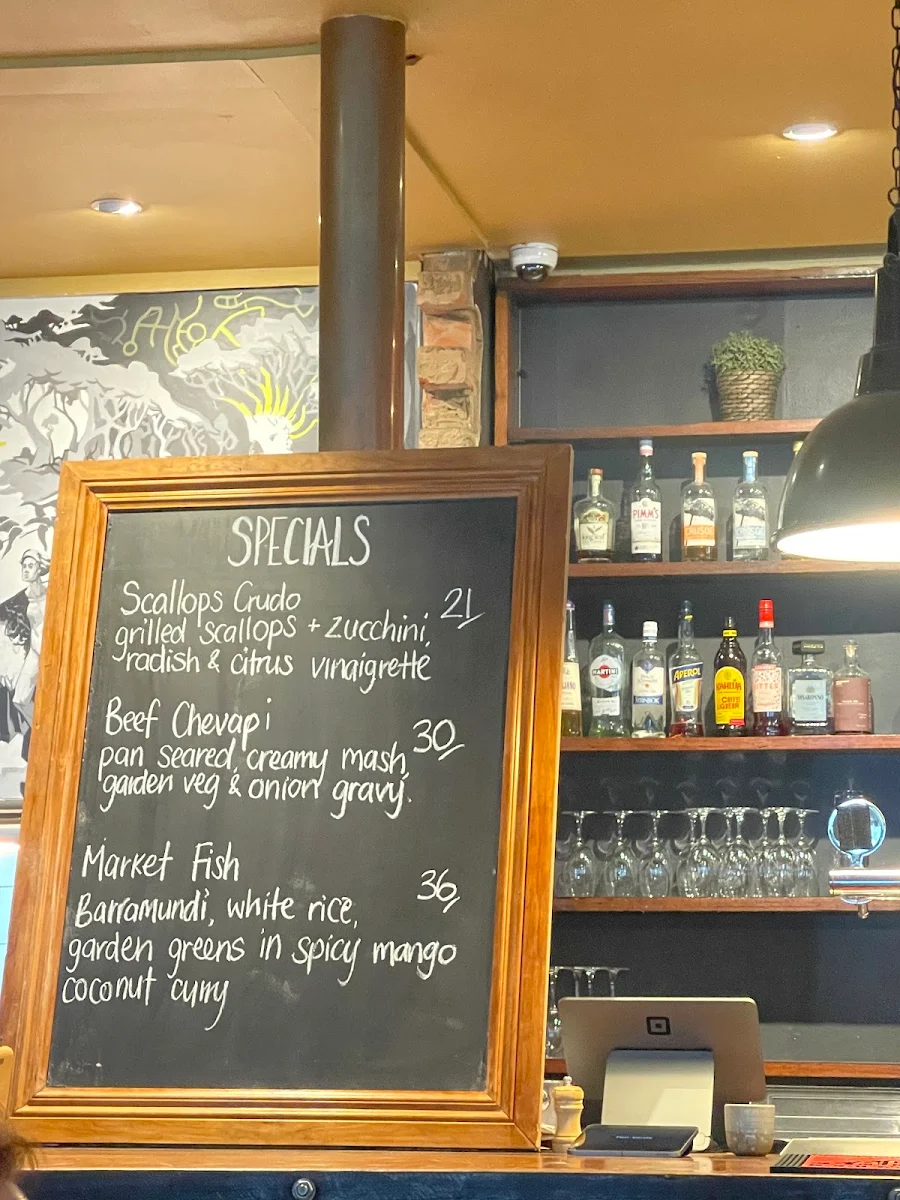 SPECIALS
Scallops Crudo 21
grilled scallops + zucchini,
radish & citrus vinaigrette
Beef Chevapi 30
pan seared, creamy mash,
garden veg & onion gravy.
Market Fish 36
Barramundi, white rice,
garden greens in spicy mango
coconut curry
PIMM'S
MARTINI
APEROL
KAHLÚA